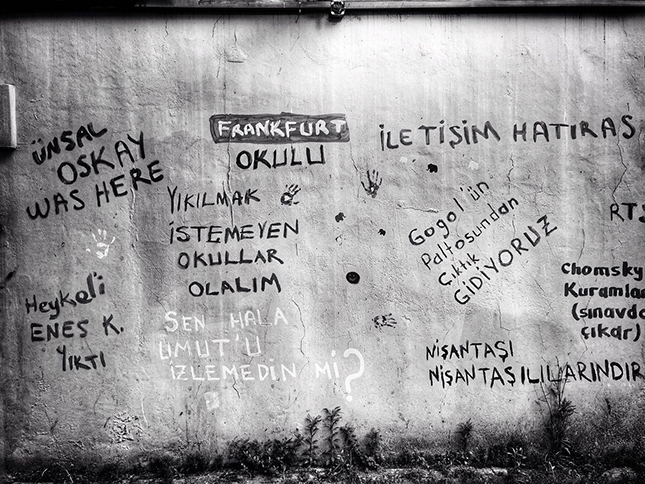 ÜNSAL
OSKAY
WAS HERE
FRANKFURT
OKULU
YIKILMAK
İSTEMEYEN
OKULLAR
OLALIM
SEN HALA
UMUT'U
İZLEMEDİN Mİ?
Heykel'i
ENES K.
YIKTI
İLETİŞİM HATIRAS
Gogol'ün
Paltosundan
Çıktık
GİDİYORUZ
NİŞANTAŞI
NİŞANTAŞILILARINDIR
RTS
Chomsky
Kuramlar
(sınavda
çıkar)